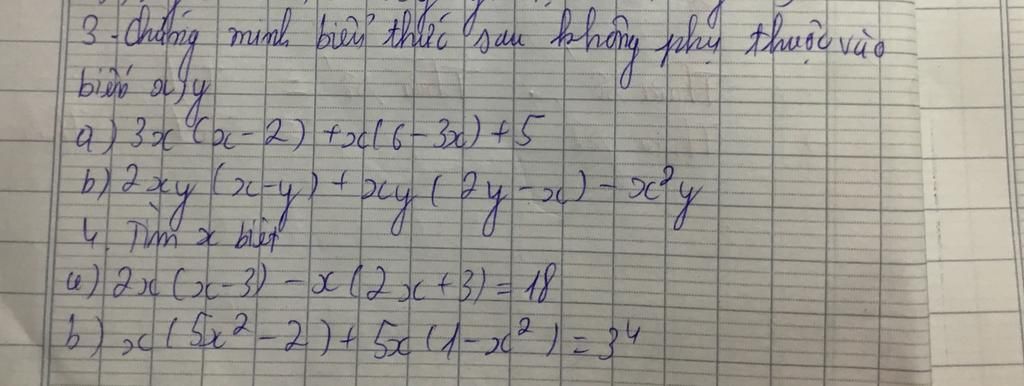 3. Chứng minh biểu thức sau không phụ thuộc vào
biến x, y
a) 3x (x - 2) + x(6 - 3x) + 5
b) 2xy (x - y) + xy (2y - x) - x²y
4. Tìm x biết
a) 2x (x - 3) - x (2x + 3) = 18
b) x (5x² - 2) + 5x (1 - x²) = 3⁴